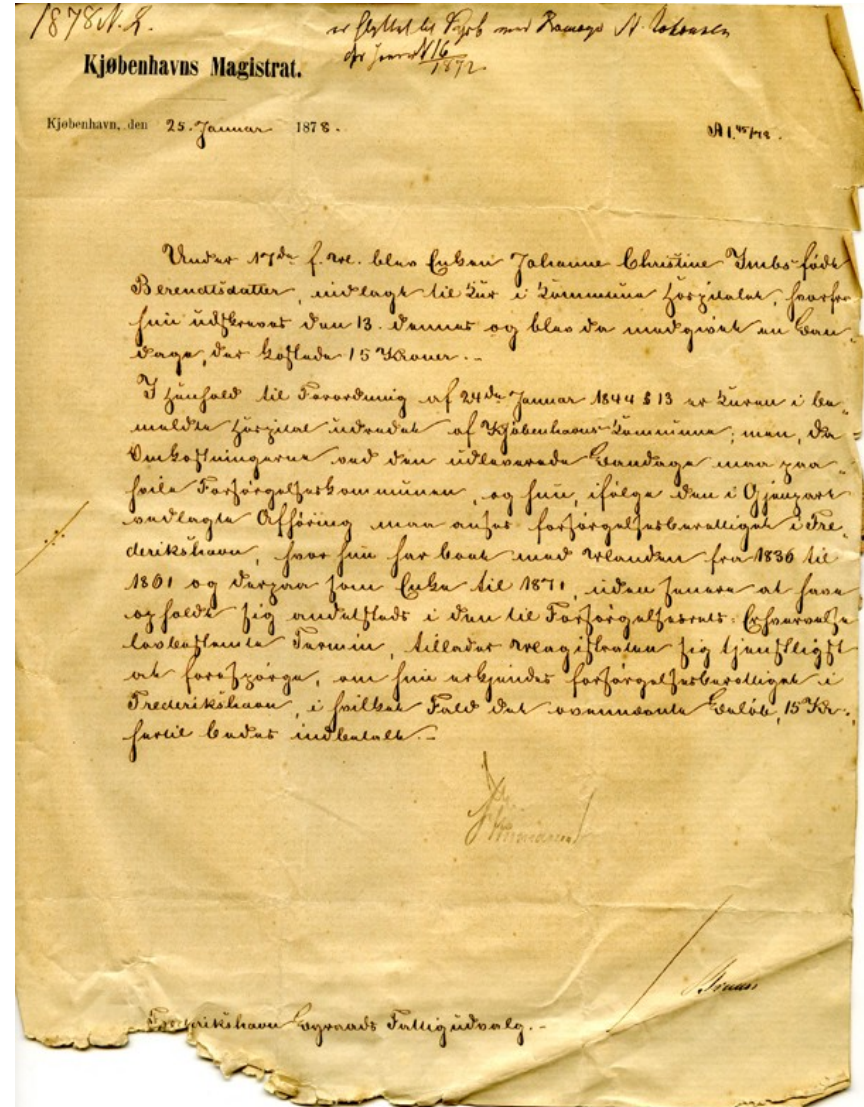 1878 N. 2.
er flyttet til
Jour. N 16/1872
Kjøbenhavns Magistrat.
Kjøbenhavn, den 25. Januar 1878.
Under 17de f. M. blev Enken Johanne Christine Imbs født
Berendtsdatter, indlagt til Kur i Kommune Hospitalet, hvorfra
hun udskreves den 13. dennes og blev da medgivet en Ban-
dage, der kostede 15 Kroner.-
I Henhold til Forordning af 24de Januar 1844 § 13 er Kuren i be-
meldte Hospital udredet af Kjøbenhavns Kommune; men, da
Omkostningerne ved den udleverede Bandage maa paa-
hvile Forsørgelseskommunen, og hun, ifølge den i Gjenpart
vedlagte Afhøring maa anses forsørgelsesberettiget i Fre-
derikshavn, hvor hun har boet med Manden fra 1836 til
1861 og derpaa som Enke til 1871, uden senere at have
opholdt sig andetsteds i den til Forsørgelsesrets Erhvervelse
lovbestemte Termin, tillader Magistraten sig tjenstligst
at forespørge, om hun erkjendes forsørgelsesberettiget i
Frederikshavn, i hvilket Fald det ovennævnte Beløb, 15 Kr.,
hertil bedes indbetalt.-
Frederikshavn Byraads Fattigudvalg.-